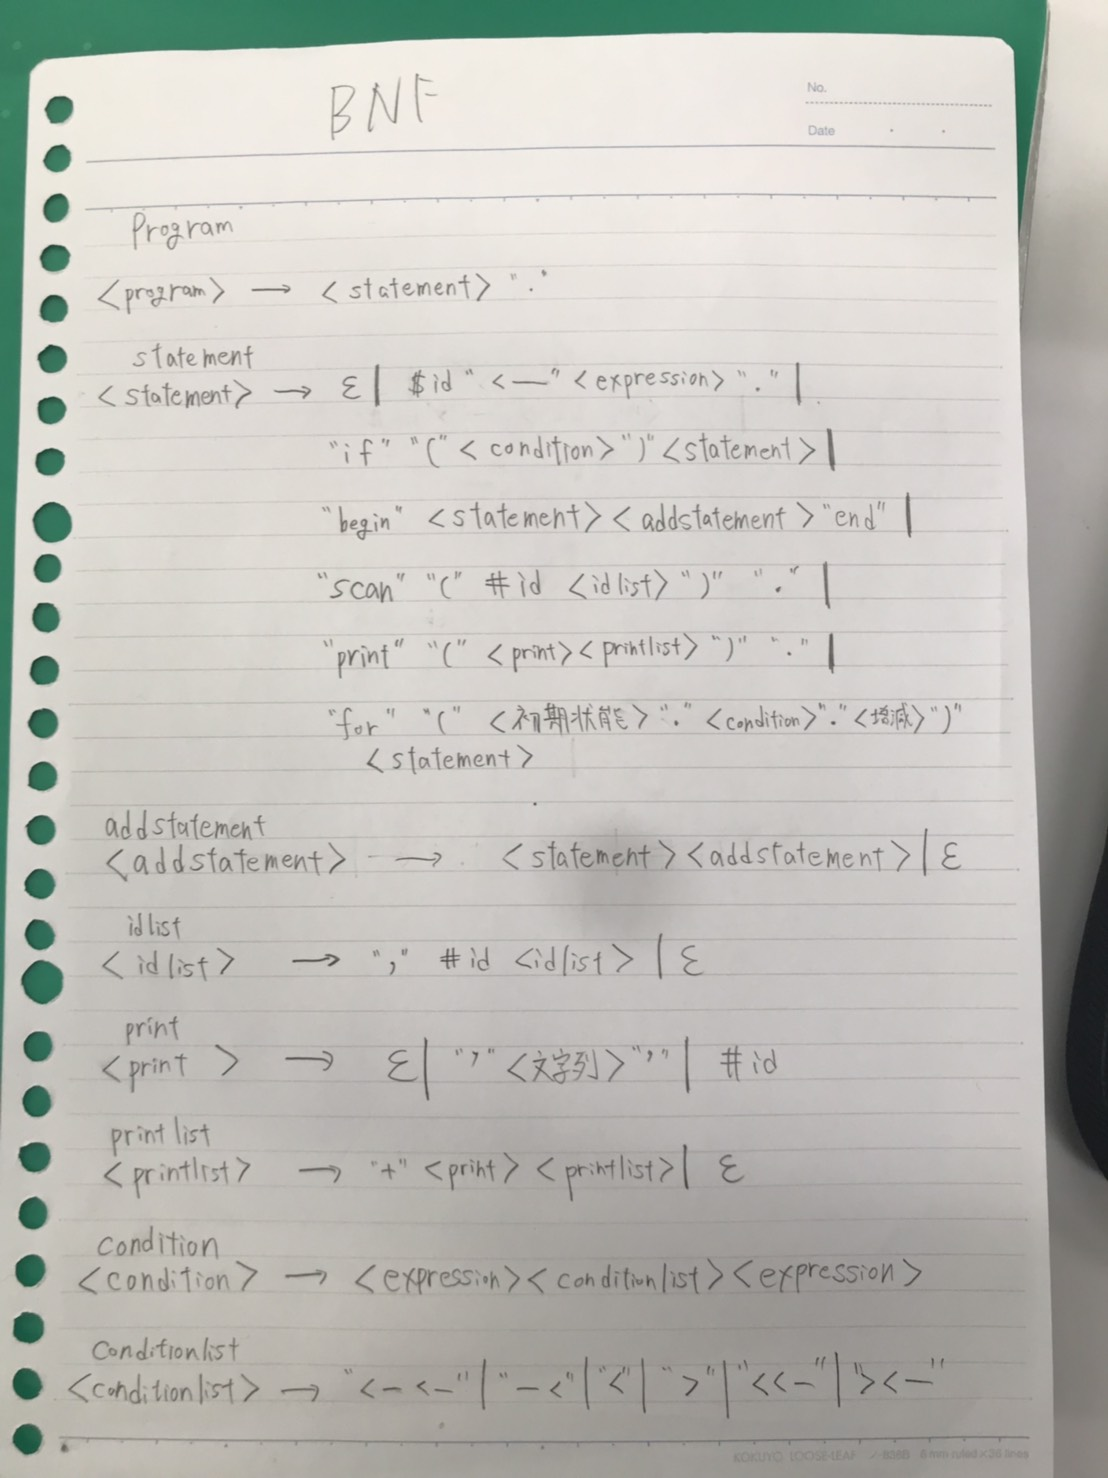 BNF
No.
Date
Program
<program> → <statement> "."
statement
<statement> → ε | $id "<—" <expression> "." |
"if" "(" <condition> ")" <statement> |
"begin" <statement> <addstatement> "end" |
"scan" "(" #id <idlist> ")" "." |
"print" "(" <print> <printlist> ")" "." |
"for" "(" <初期状能> "." <condition> "." <増減> ")"
<statement>
addstatement
<addstatement> → <statement> <addstatement> | ε
idlist
<idlist> → "," #id <idlist> | ε
print
<print > → ε | "’" <文字列> "’" | #id
print list
<printlist> → "+" <print> <printlist> | ε
condition
<condition> → <expression> <conditionlist> <expression>
Conditionlist
<conditionlist> → "<-<-" | "-<" | "<" | ">" | "<<-" | "><-"
KOKUYO LOOSE-LEAF ノ-836B 6 mm ruled×36 lines